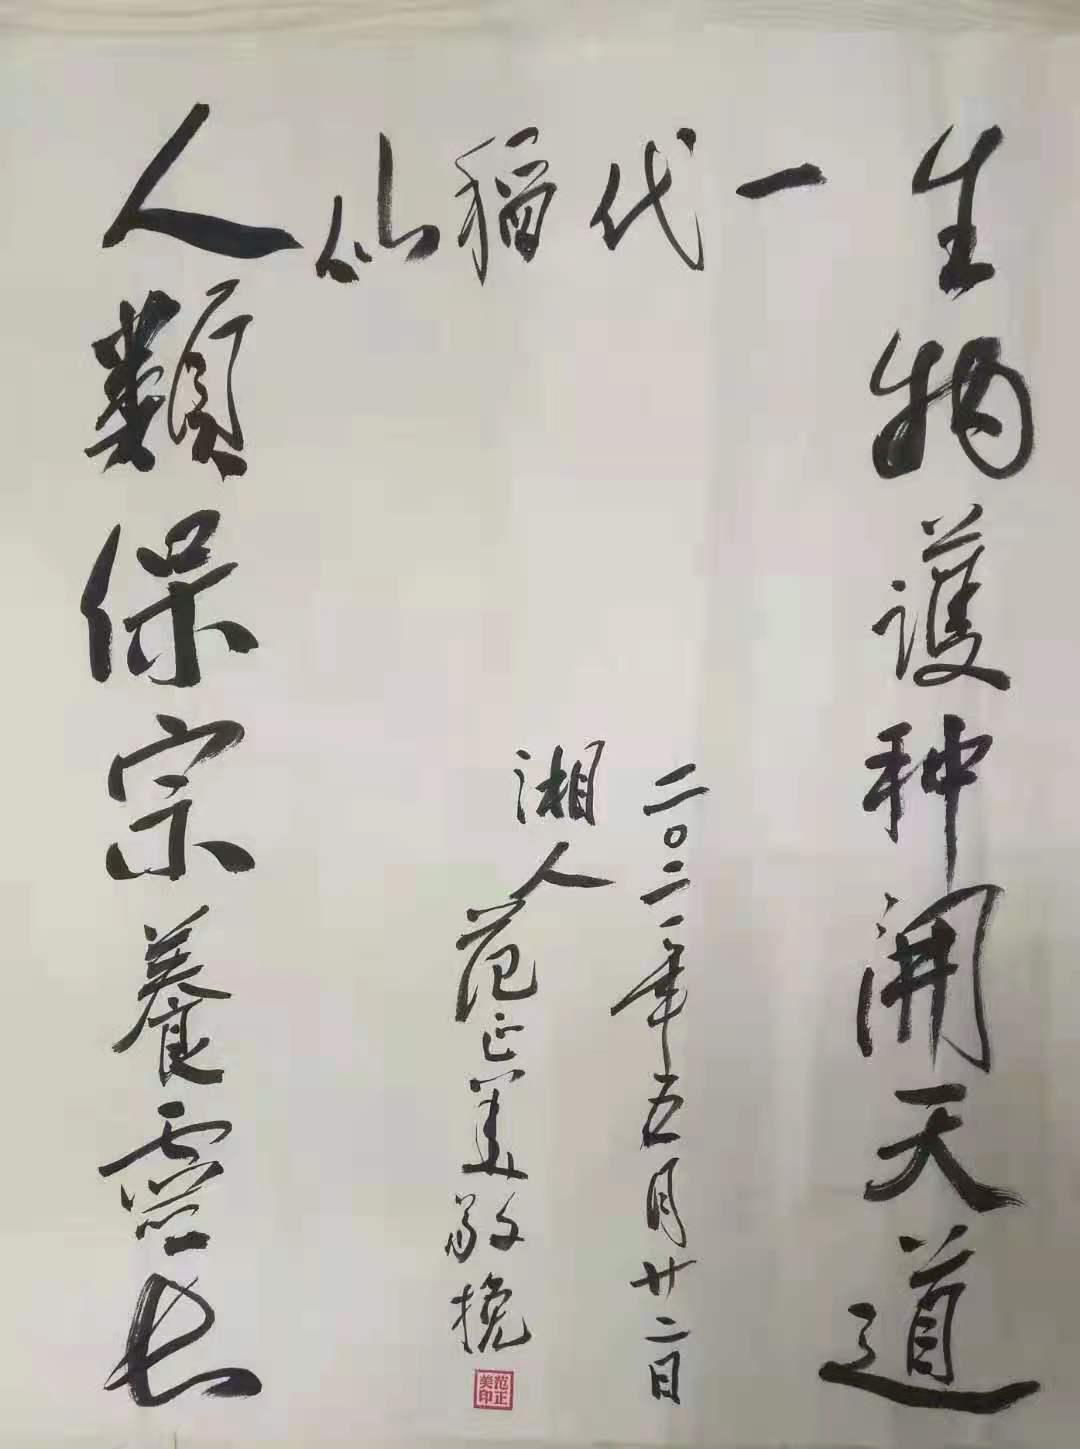 生物護种開天道
一代稻仙
二〇二一年五月廿二日
湘人范正美敬挽
范正
美印
人類保宗養靈長